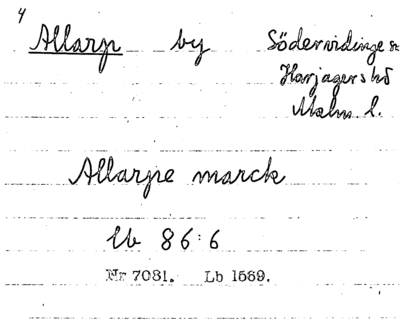 4
Allarp by Södervidinge sn
Harjagers hd
Malm l.
Allarpe marck
Lb 86:6
Nr 7081. Lb 1569.